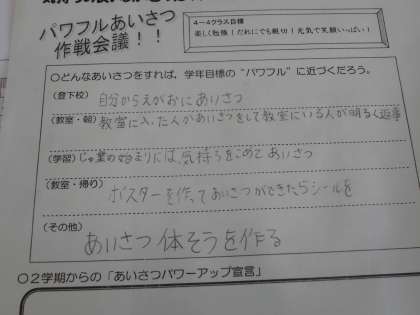 パワフルあいさつ
作戦会議！！
4－4クラス目標
楽しく勉強！だれにでも親切！元気で笑顔いっぱい！
○どんなあいさつをすれば、学年目標の“パワフル”に近づくだろう。
(登下校) 自分からえがおにあいさつ
(教室・朝) 教室に入った人があいさつをして教室にいる人が明るく返事
(学習) じゅ業の始まりには、気持ちをこめてあいさつ
(教室・帰り) ポスターを作ってあいさつができたらシールを
(その他) あいさつ体そうを作る
○2学期からの「あいさつパワーアップ宣言」